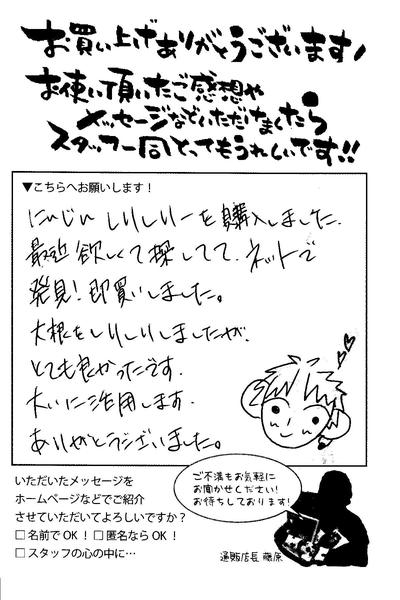 お買い上げありがとうございます!
お使い頂いたご感想や
メッセージなどいただけましたら
スタッフ一同とってもうれしいです!!
▼こちらへお願いします!
にんじんしりしりーを購入しました.
最近欲しくて探してて.ネットで
発見!即買いしました。
大根をしりしりしましたが.
とても良かったです.
大いに活用します.
ありがとうございました。
いただいたメッセージを
ホームページなどでご紹介
させていただいてよろしいですか?
□名前でOK! □匿名ならOK!
□スタッフの心の中に…
ご不満もお気軽に
お聞かせください!
お待ちしております!
通販店長 藤原